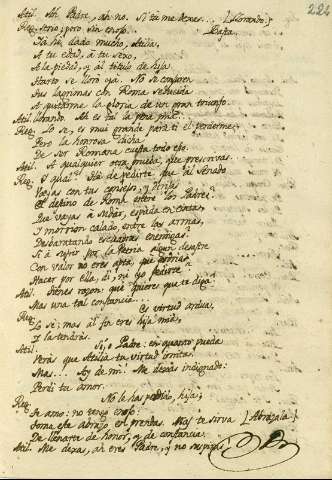 224
Atil. Ah Padre, ah no. Si tu me dexas... [Llorando]
Reg. Serio, pero sin enojo... Basta.
Ya has dado mucho, Atilia,
A tu edad, a tu sexo,
A la piedad, y al titulo de hija.
Harto se lloró ya. No se conjuren
Tus lagrimas con Roma seducida
A quitarme la gloria de un gran triunfo.
Atil. llorando. Ah es tal la pena mia...
Reg. Lo se, es mui grande para ti el perderme;
Pero la honrosa dicha
De ser Romana cuesta todo eso.
Atil. Pº qualquier otra prueba, que prescrivas.
Reg. Y qual? Ha de pedirte que al Senado
Vayas con tus consejos, y
El destino de Roma entre los Padres?
Que vayas a lidiar, espada en cinta,
Y morrion calado entre las armas,
Desbaratando esquadras enemigas?
Si a sufrir por la Patria algun desastre
Con valor no eres apta, que
Hacer por ella, di, ni yo pedirte?
Atil. Tienes razon: que quieres que te diga?
Mas una tal constancia...
Reg. Es virtud ardua,
Lo sé; mas al fin eres hija mia,
Y la tendrás.
Atil. Si, o Padre: en quanto pueda
Verás que Atilia tu virtud imita.
Mas... Ay de mi! Me dexas indignado:
Perdi tu amor.
Reg. No le has perdido, hija;
Te amo: no tengo enojo:
Toma este abrazo en prendas. Mas te sirva [Abrazala]
De llenarte de honor, y de constancia.
Atil. Me dexas, ah eres Padre, y no suspiras